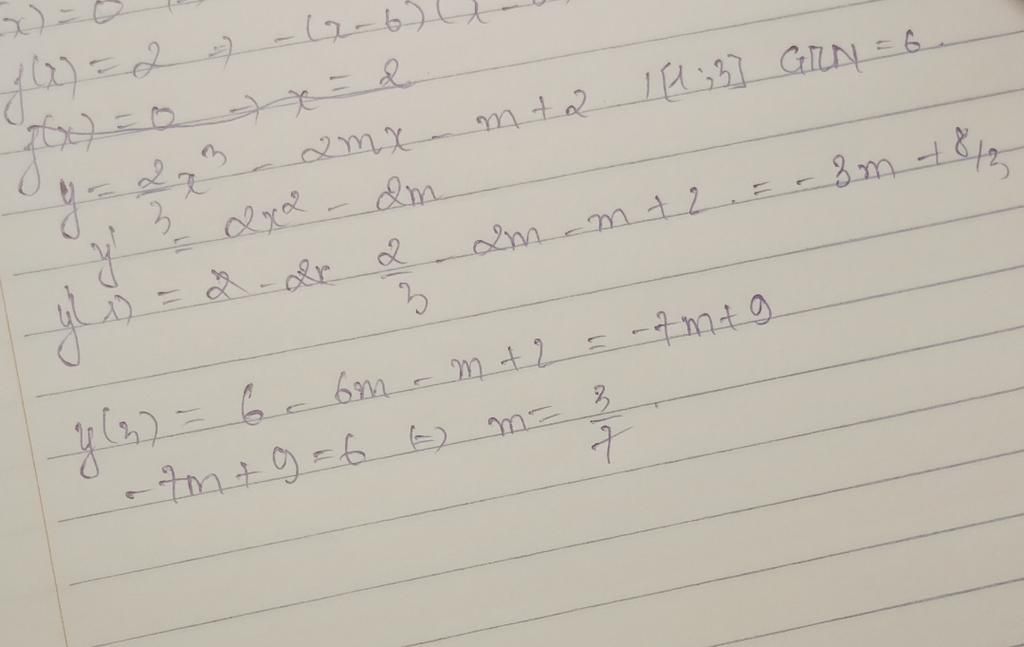 x) = 0
g(x) = 2 => -(x-6)(x-
g(x) = 0 => x = 2
y = 2/3 x³ - 2mx - m + 2 /[1;3] GTLN = 6.
y' = 2x² - 2m
y(1) = 2 - 2x 2/3 - 2m - m + 2 = -3m + 8/3
y(3) = 6 - 6m - m + 2 = -7m + 9
-7m + 9 = 6 (=) m = 3/7.